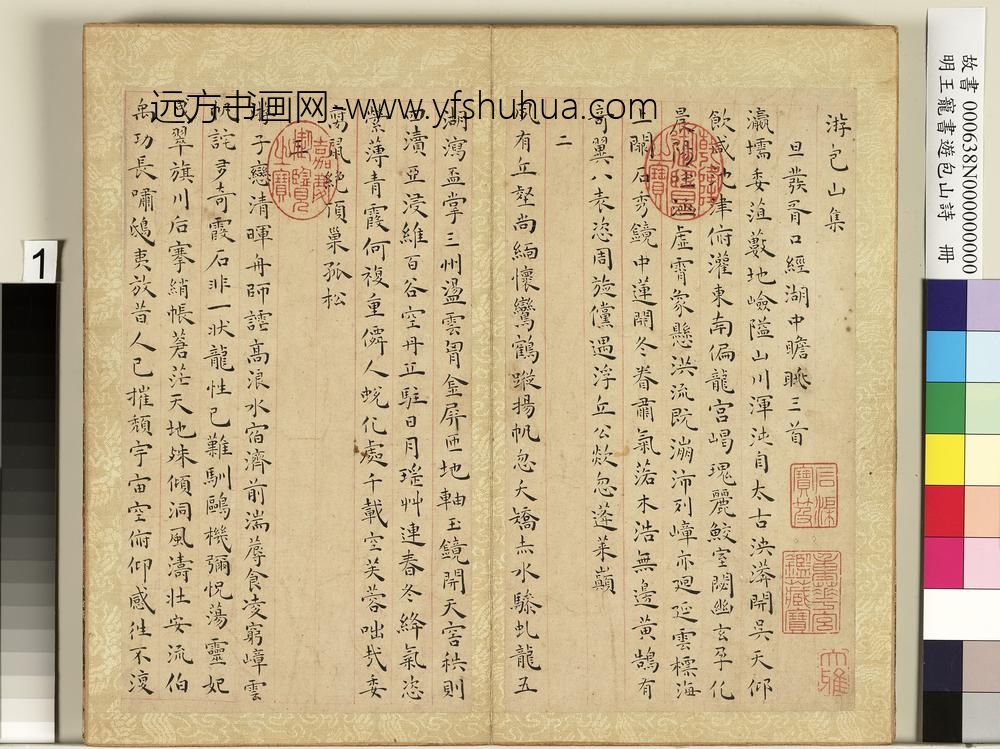 游包山集
旦發胥口經湖中瞻眺三首
瀛壖委菹藪地嶮隘山川渾沌自太古泱漭開吳天仰
飲咸池津俯灌東南偏龍宮嵑瑰麗鮫室閟幽玄孕化
虛霄象懸洪流既漰沛列嶂亦廻延雲標海
上闢石秀鏡中蓮開冬眷肅氣落木浩無邊黃鵠有
奇翼八表恣周旋儻遇浮丘公欻忽蓬萊巔
二
風有丘壑尚緬懷鸞鶴蹤揚帆忽夭矯赤水驂虬龍五
湖瀉盃掌三州盪雲胷金屏匝地軸玉鏡開天容秩則
四瀆亞浸維百谷空丹丘駐日月瑤艸連春冬絳氣恣
縈薄青霞何複重僊人蛻化處千載空芙蓉咄哉委
窮鼠絕頂巢孤松
子戀清暉舟師譸高浪水宿濟前湍蓐食凌窮嶂雲
帆詫多奇霞石非一狀龍性已難馴鷗機彌怳蕩靈妃
翠旗川后搴綃帳蒼茫天地殊傾洞風濤壯安流伯
禹功長嘯鴟夷放昔人已摧頹宇宙空俯仰感徃不復
远方书画网-www.yfshuhua.com
嘉慶御覽之寶
石渠寶笈
重華宮鑑藏寶
故書 000638N000000000
明王寵書遊包山詩 冊
1